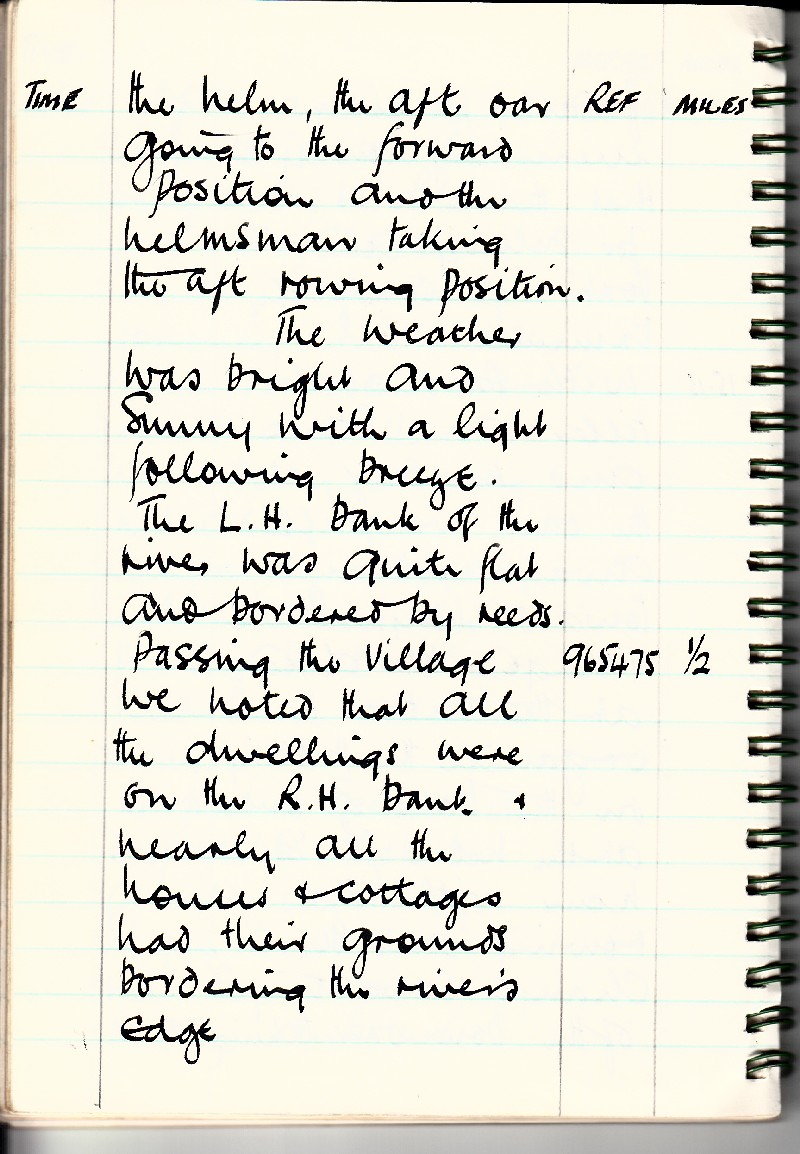 TIME the helm, the aft oar REF MILES
going to the forward
position and the
helmsman taking
the aft rowing position.
The weather
was bright and
Sunny with a light
following breeze.
The L.H. bank of the
river was quite flat
and bordered by reeds.
Passing the village 965475 1/2
we noted that all
the dwellings were
on the R.H. bank &
nearly all the
houses & cottages
had their grounds
bordering the river's
Edge